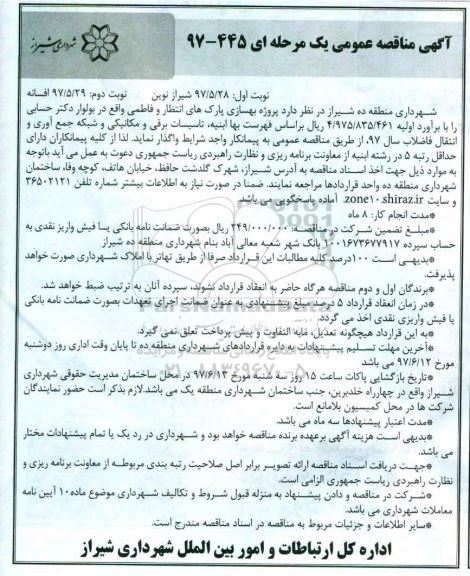 شهرداری شیراز
آگهی مناقصه عمومی یک مرحله ای ۴۴۵-۹۷
نوبت اول: ۹۷/۵/۲۸ شیراز نوین نوبت دوم: ۹۷/۵/۲۹ افسانه
شهرداری منطقه ده شیراز در نظر دارد پروژه بهسازی پارک های انتظار و فاطمی واقع در بولوار دکتر حسابی
را با برآورد اولیه ۴/۹۷۵/۸۳۵/۴۶۱ ریال براساس فهرست بها ابنیه، تاسیسات برقی و مکانیکی و شبکه جمع آوری و
انتقال فاضلاب سال ۹۷، از طریق مناقصه عمومی به پیمانکار واجد شرایط واگذار نماید. لذا از کلیه پیمانکاران دارای
حداقل رتبه ۵ در رشته ابنیه از معاونت برنامه ریزی و نظارت راهبردی ریاست جمهوری دعوت به عمل می آید باتوجه
به موارد ذیل جهت اخذ اسناد مناقصه به آدرس شیراز، شهرک گلدشت حافظ، خیابان هاتف، کوچه وفا، ساختمان
شهرداری منطقه ده واحد قراردادها مراجعه نمایند. ضمنا در صورت نیاز به اطلاعات بیشتر شماره تلفن ۳۶۵۰۲۱۲۱
و سایت zone10.shiraz.ir آماده پاسخگویی می باشد.
*مدت انجام کار: ۸ ماه
*مبلغ تضمین شرکت در مناقصه: ۲۴۹/۰۰۰/۰۰۰ ریال بصورت ضمانت نامه بانکی یا فیش واریز نقدی به
حساب سپرده ۱۰۰۱۶۷۳۶۷۷۹۱۷ بانک شهر شعبه معالی آباد بنام شهرداری منطقه ده شیراز
*بدیهی است ۱۰۰درصد کلیه مطالبات این قرارداد صرفا از طریق تهاتر با املاک شهرداری صورت خواهد
پذیرفت.
*برندگان اول و دوم مناقصه هرگاه حاضر به انعقاد قرارداد نشوند، سپرده آنان به ترتیب ضبط خواهد شد.
*در زمان انعقاد قرارداد ۵ درصد مبلغ پیشنهادی به عنوان ضمانت اجرای تعهدات بصورت ضمانت نامه بانکی
یا فیش واریزی نقدی اخذ می گردد.
*به این قرارداد هیچگونه تعدیل، مابه التفاوت و پیش پرداخت تعلق نمی گیرد.
*آخرین مهلت تسلیم پیشنهادات به دایره قراردادهای شهرداری منطقه ده تا پایان وقت اداری روز دوشنبه
مورخ ۹۷/۶/۱۲ می باشد
*تاریخ بازگشایی پاکات ساعت ۱۵ روز سه شنبه مورخ ۹۷/۶/۱۳ در محل ساختمان مدیریت حقوقی شهرداری
شیراز واقع در چهارراه خلدبرین، جنب ساختمان شهرداری منطقه یک می باشد.لازم بذکر است حضور نمایندگان
شرکت ها در محل کمیسیون بلامانع است.
*مدت اعتبار پیشنهادها سه ماه می باشد.
*بدیهی است هزینه آگهی برعهده برنده مناقصه خواهد بود و شهرداری در رد یک یا تمام پیشنهادات مختار
می باشد.
*جهت دریافت اسناد مناقصه ارائه تصویر برابر اصل صلاحیت رتبه بندی مربوطه از معاونت برنامه ریزی و
نظارت راهبردی ریاست جمهوری الزامی است.
*شرکت در مناقصه و دادن پیشنهاد به منزله قبول شروط و تکالیف شهرداری موضوع ماده۱۰ آیین نامه
معاملات شهرداری می باشد.
*سایر اطلاعات و جزئیات مربوط به مناقصه در اسناد مناقصه مندرج است.
اداره کل ارتباطات و امور بین الملل شهرداری شیراز